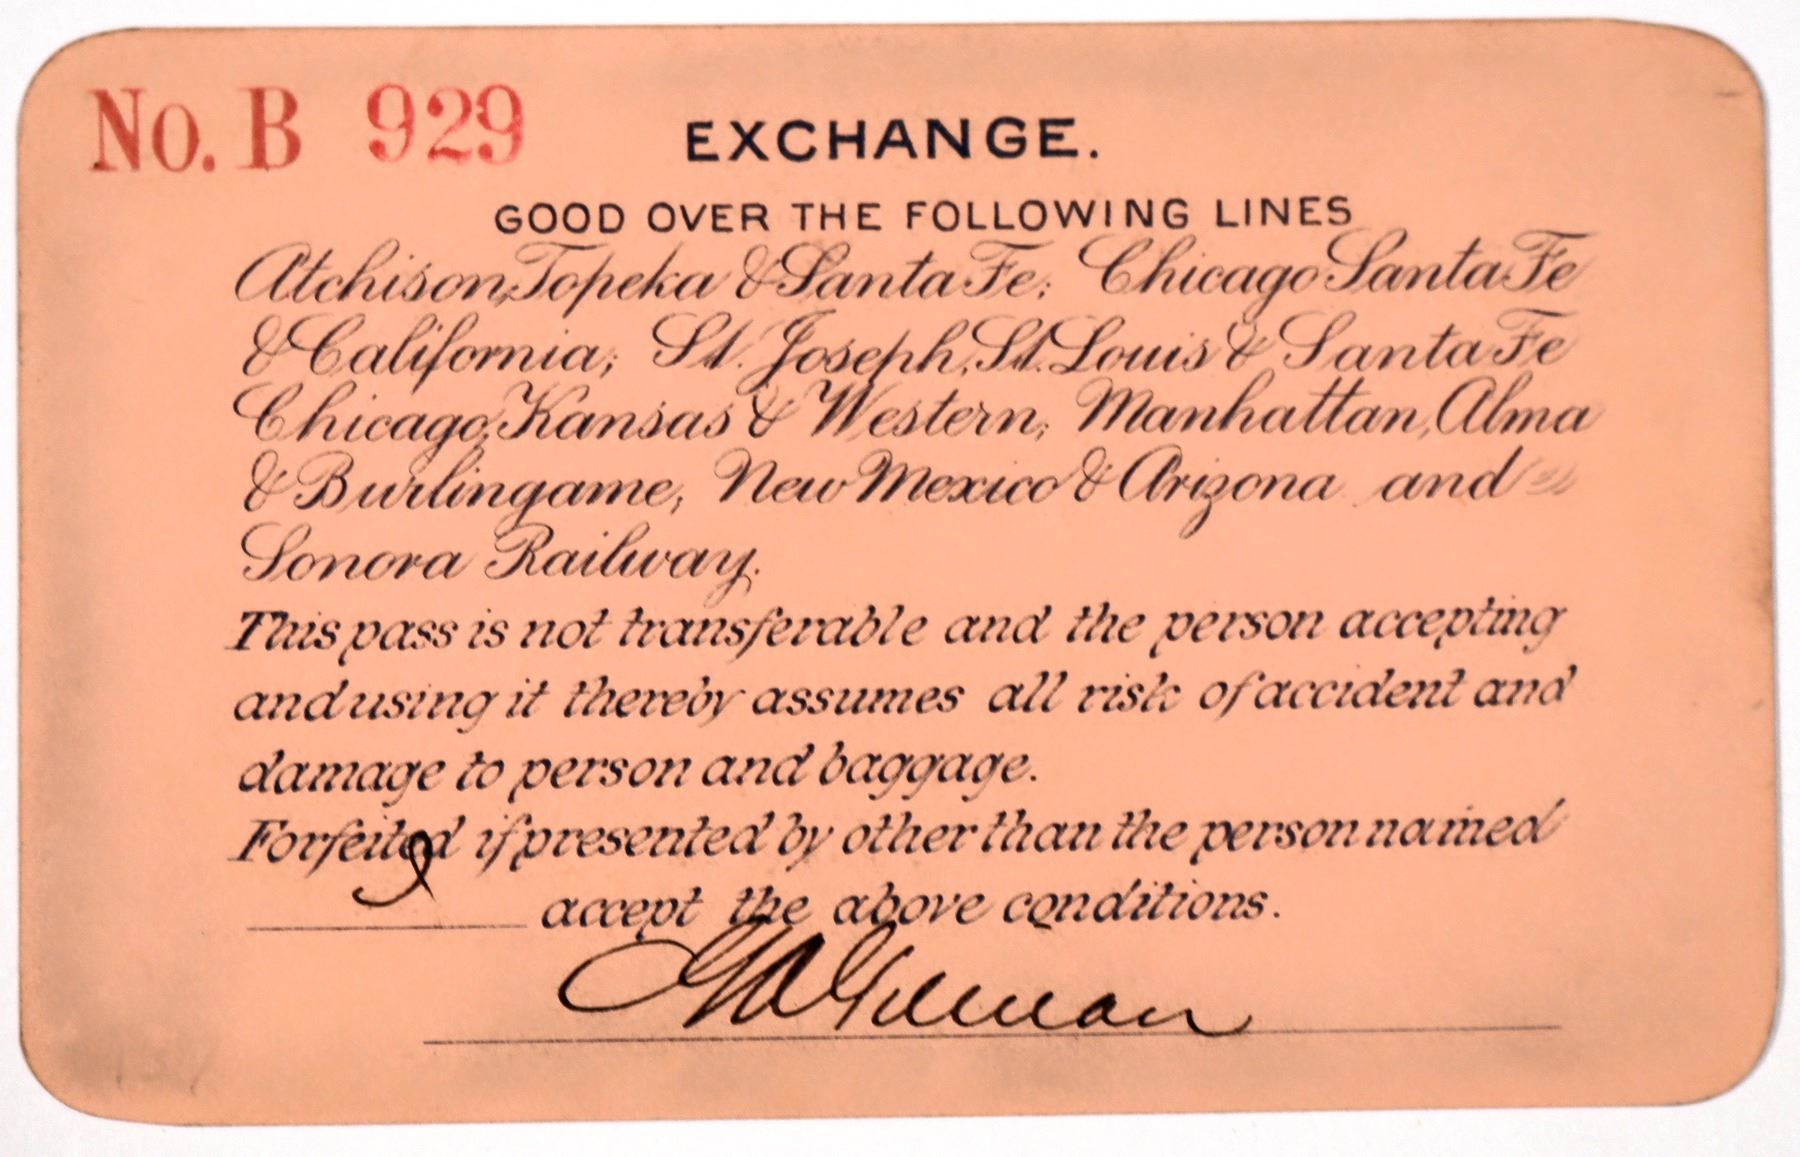 No. B 929
EXCHANGE.
GOOD OVER THE FOLLOWING LINES
Atchison, Topeka & Santa Fe; Chicago Santa Fe
& California; St. Joseph, St. Louis & Santa Fe
Chicago, Kansas & Western; Manhattan, Alma
& Burlingame; New Mexico & Arizona and
Sonora Railway.
This pass is not transferable and the person accepting
and using it thereby assumes all risk of accident and
damage to person and baggage.
Forfeited if presented by other than the person named
I accept the above conditions.
Gilman